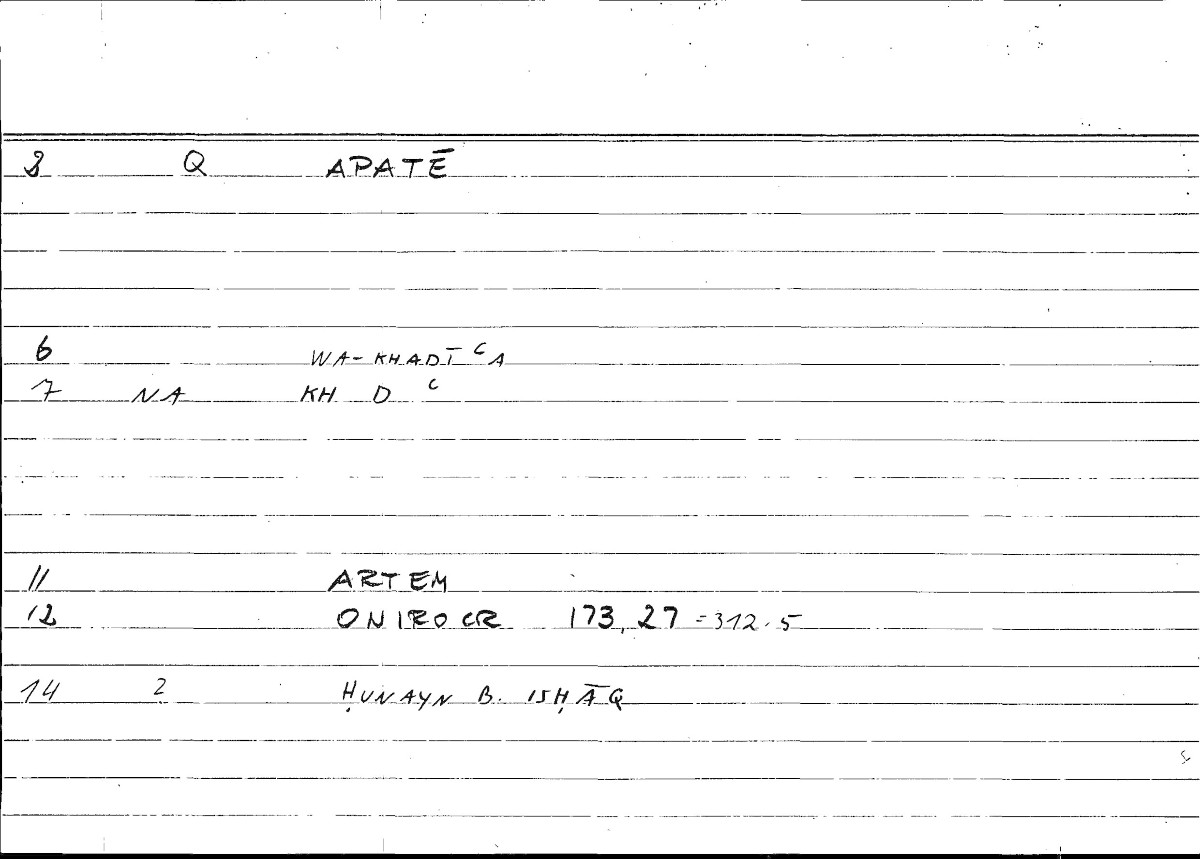 3 Q APATĒ
6 WA-KHADĪʿA
7 NA KH D ʿ
11 ARTEM
12 ONIROCR 173,27 = 312.5
14 2 ḤUNAYN B. ISḤĀQ